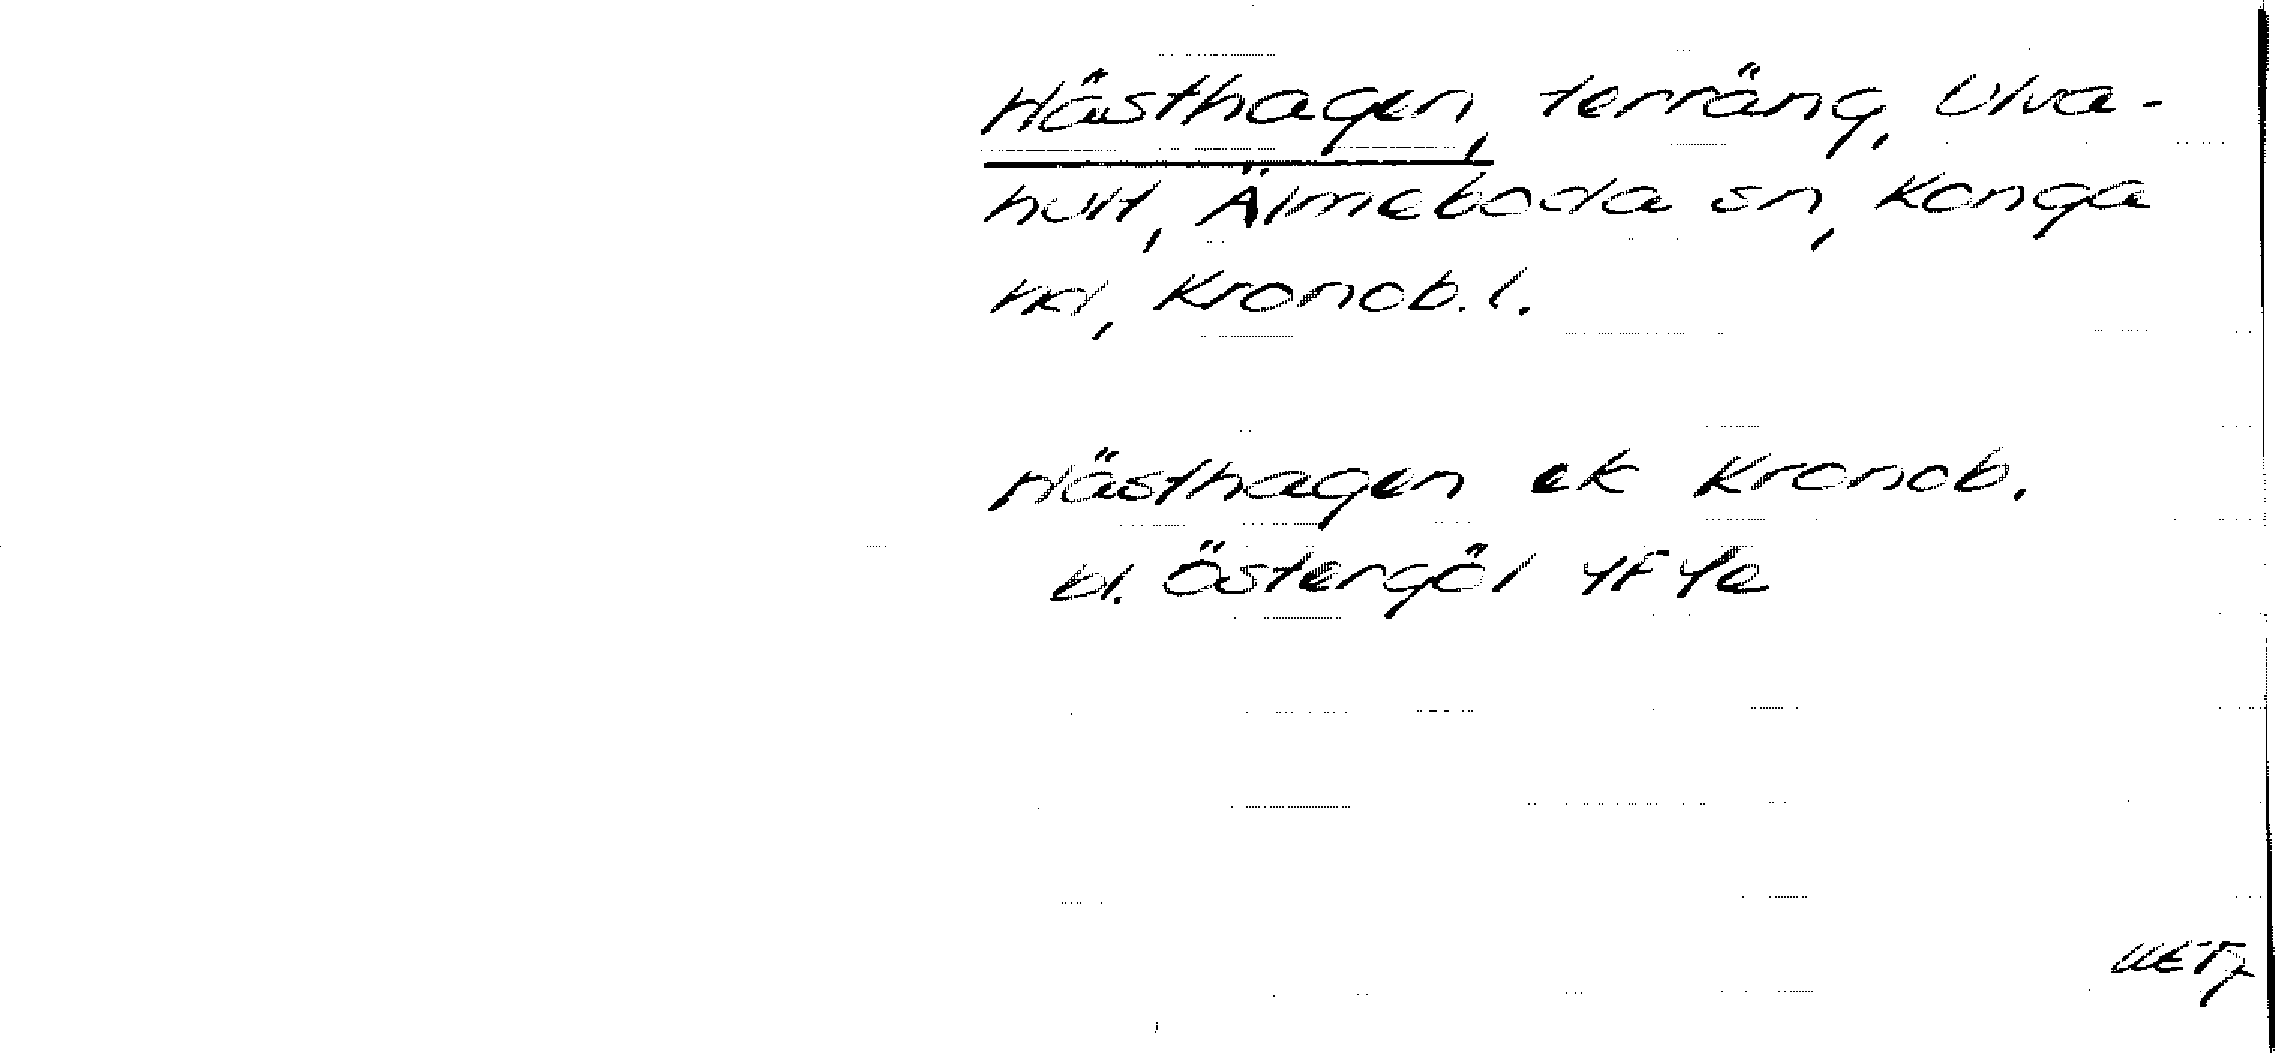 Hästhagen, terräng, Ulva-
hult, Älmeboda sn, Konga
hd, Kronob. l.
Hästhagen ek Kronob.
bl. Östergöl 4F4e